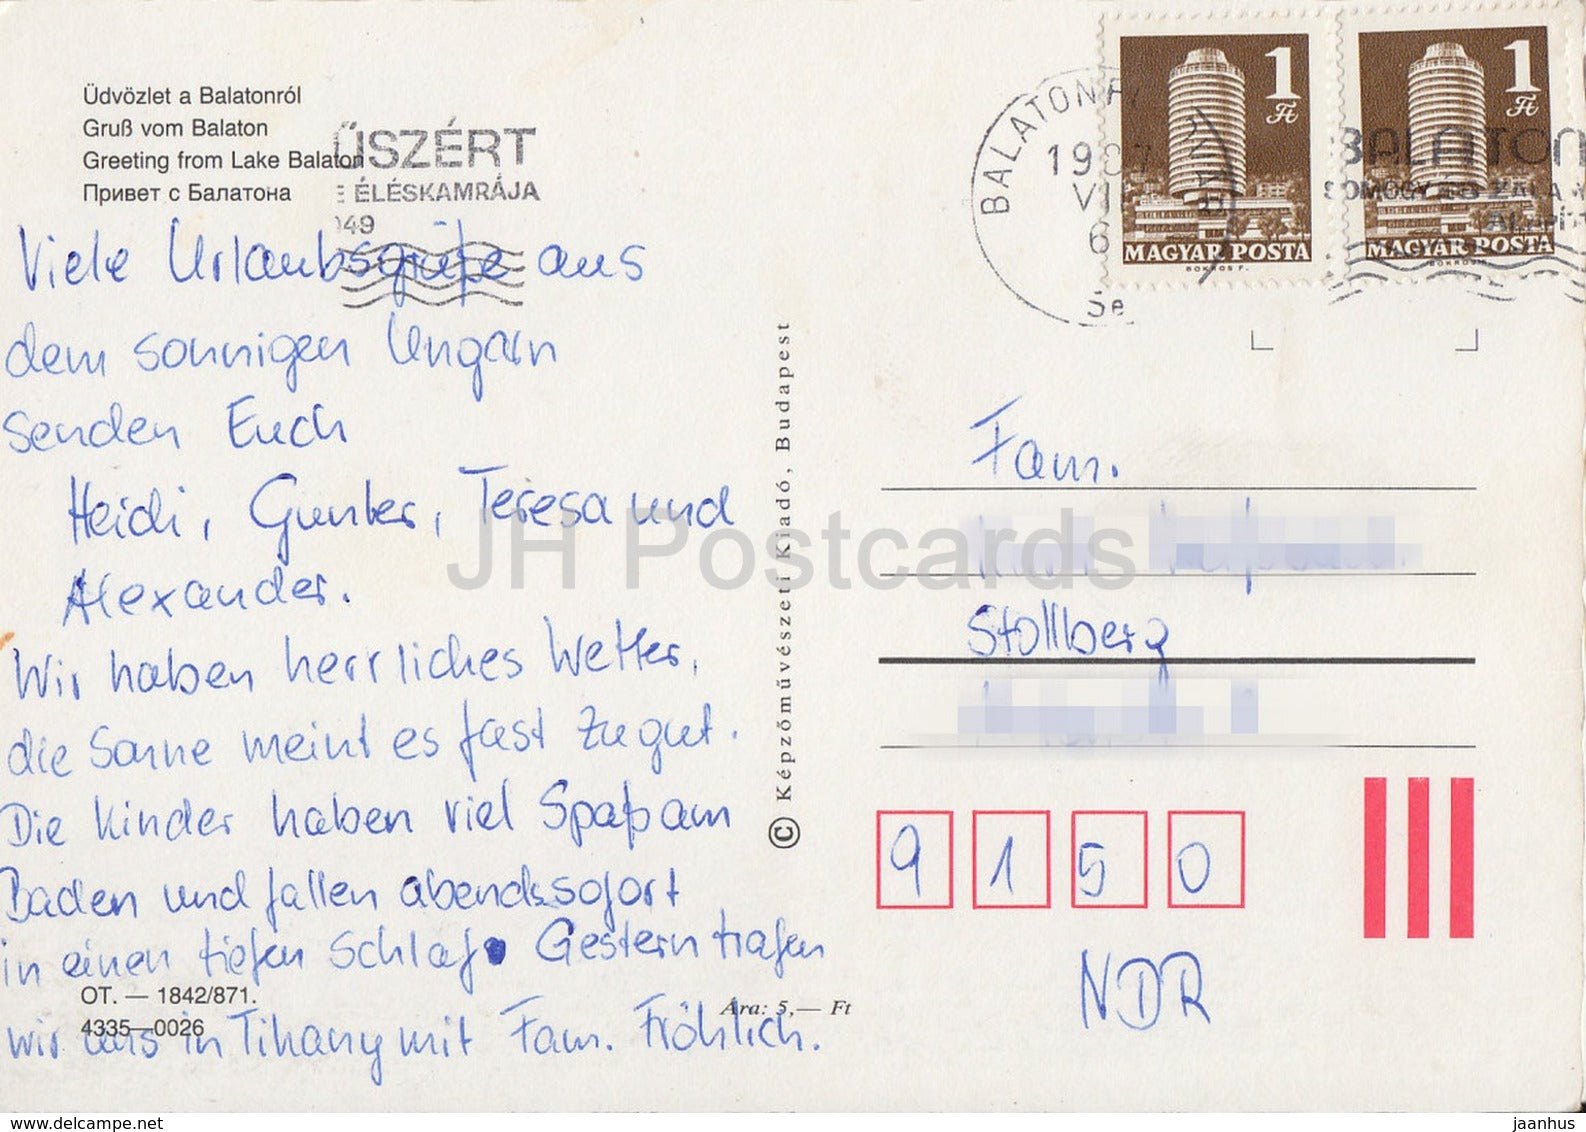 Üdvözlet a Balatonról
Gruß vom Balaton
Greeting from Lake Balaton
Привет с Балатона
ŰSZÉRT
ÉLÉSKAMRÁJA
Viele Urlaubsgrüße aus
dem sonnigen Ungarn
senden Euch
Heidi, Gunter, Teresa und
Alexander.
Wir haben herrliches Wetter,
die Sonne meint es fast zu gut.
Die Kinder haben viel Spaß am
Baden und fallen abends sofort
in einen tiefen Schlaf. Gestern trafen
wir uns in Tihany mit Fam. Fröhlich.
OT. — 1842/871.
4335—0026
Ára: 5,— Ft
© Képzőművészeti Kiadó, Budapest
BALATONF
VI
6
1 Ft
MAGYAR POSTA
BOKROS F.
1 Ft
MAGYAR POSTA
BOKROS F.
BALATON
SOMOGY ÉS ZALA
Fam.
Stollberg
9150
NDR
JH Postcards
delcampe.net
jaanhus